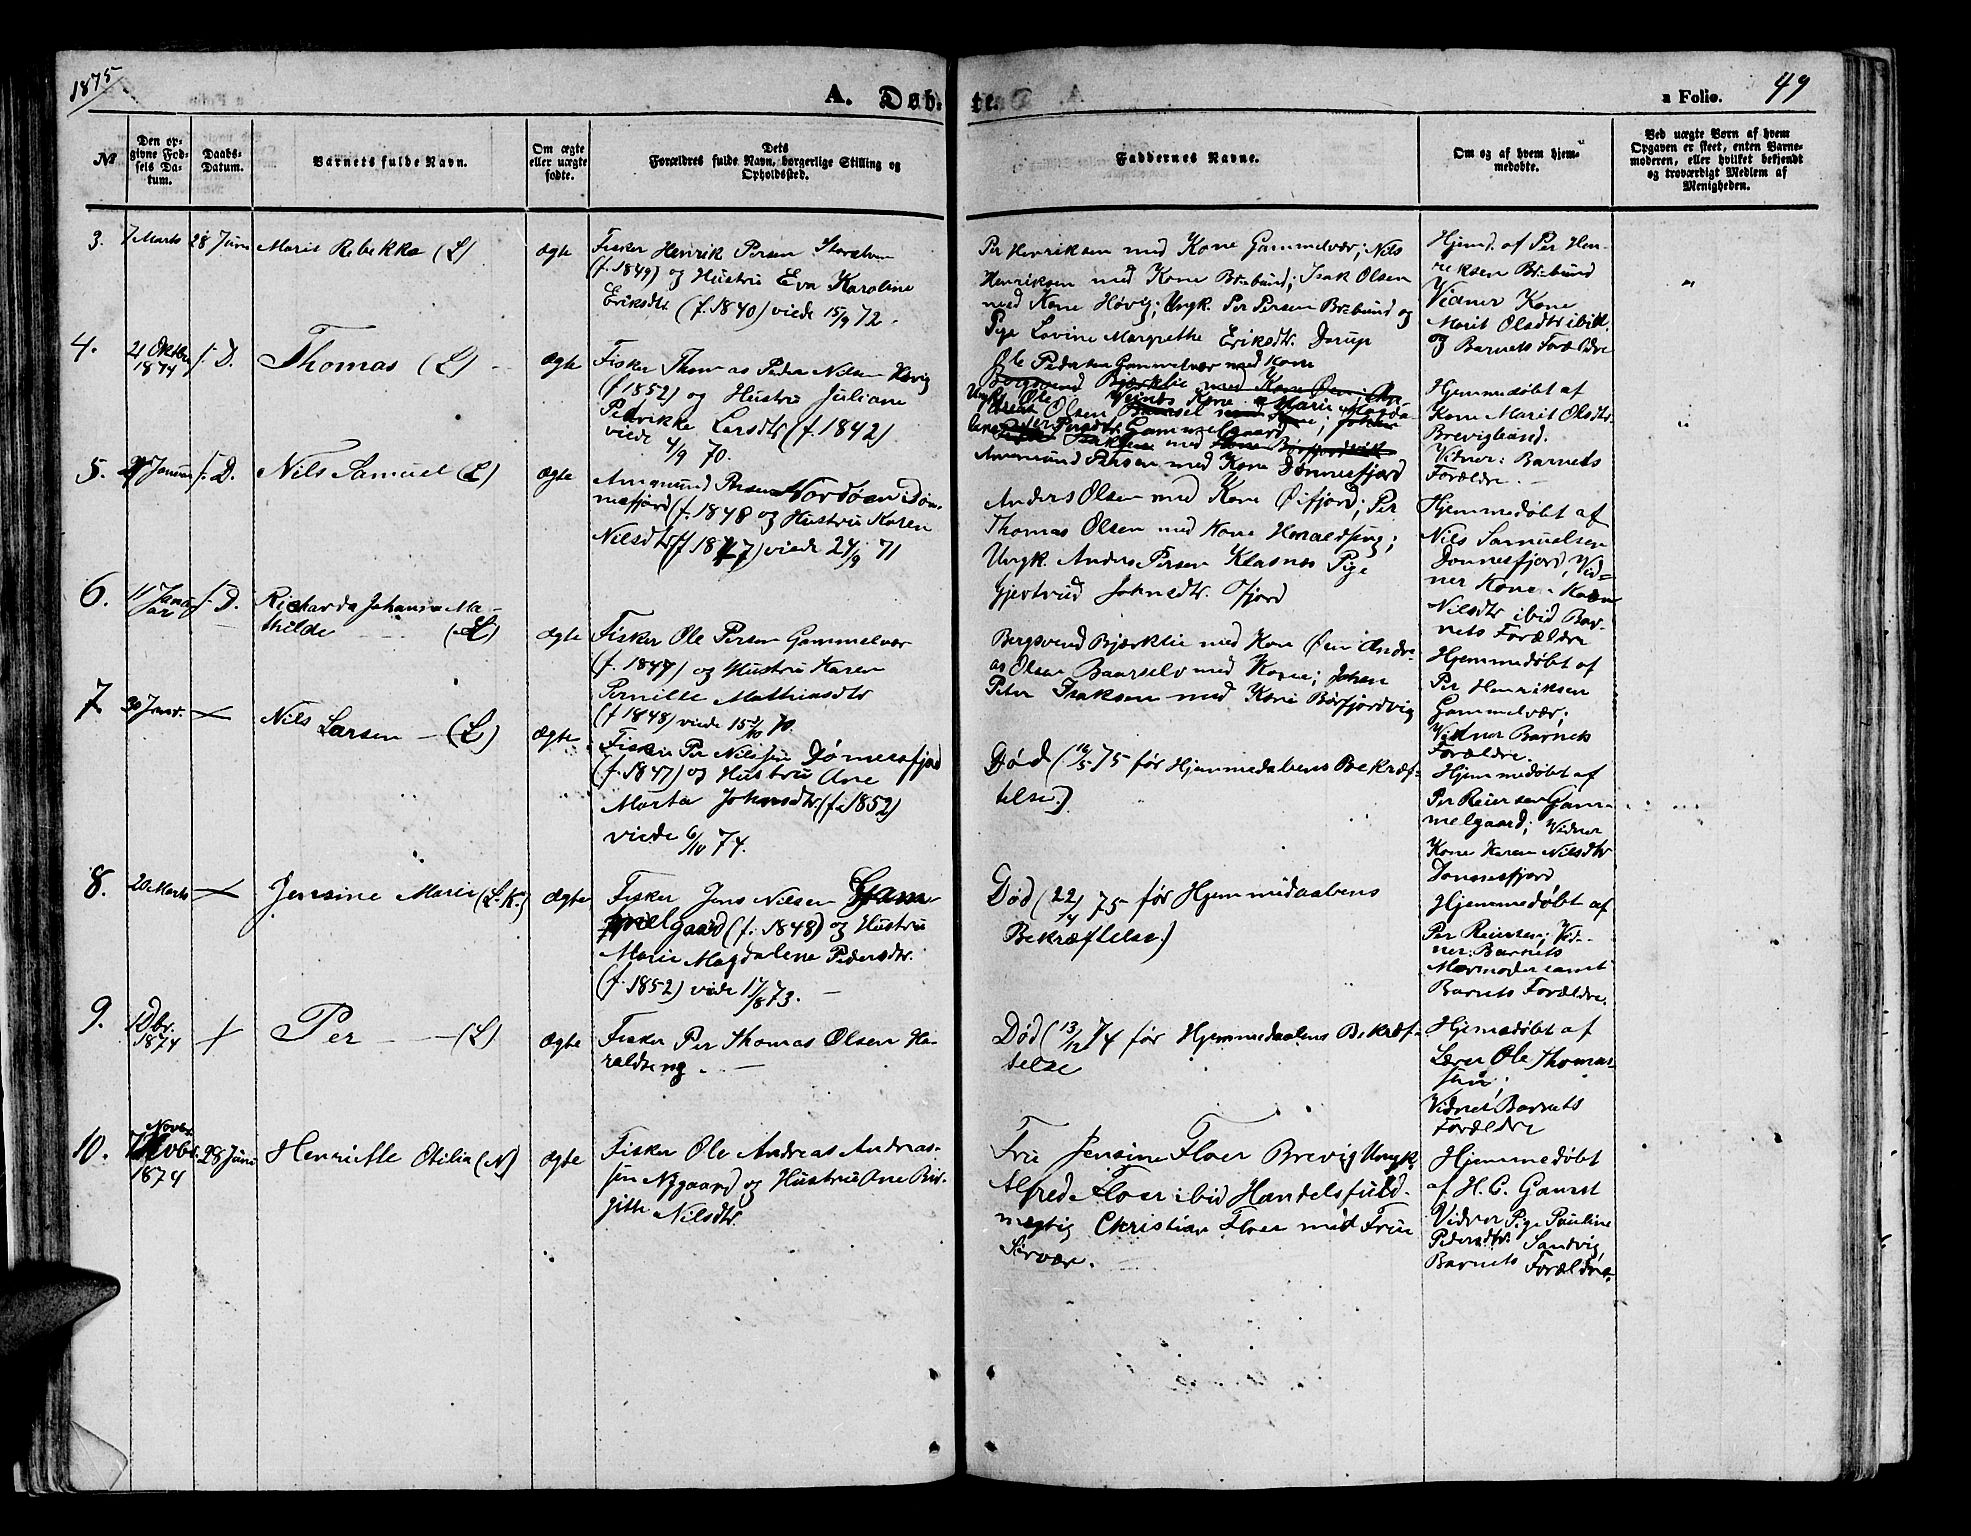 1875
A. Døbte.
a Folio. 49
№
Den opgivne Fødsels Datum.
Daabs-Datum.
Barnets fulde Navn.
Om ægte eller uægte fødte.
Dets Forældres fulde Navn, borgerlige Stilling og Opholdssted.
Faddernes Navne.
Om og af hvem hjemmedøbte.
Ved uægte Børn af hvem Opgaven er skeet, enten Barnemoderen, eller hvilket bekjendt og troværdigt Medlem af Menigheden.
3. 7 Marts 28 Juni Marit Rebekka (L) ægte
Fisker Henrik Persen
(f. 1849) og Hustru Eva Karoline
Eriksdtr (f. 1840) viede 15/9 72.
Per Henriksen med Kone Gammelvær; Nils
Henriksen med Kone Brebund; Isak Olsen
med Kone Høvig; Ungk. Per Persen Brebund og
Pige Lovine Margrethe Eriksdtr.
Hjemd. af Per Hen-
riksen Brebund
Vidner Kone
Marit Olsdtr ibid.
og Barnets Forældre
"
4. 21 Oktbr 1874 s. D. Thomas (L) ægte
Fisker Thomas Peder Nilsen Høvig
(f 1852) og Hustru Juliane
Pedrikke Larsdtr (f. 1842)
viede 4/9 70.
Ole Pedersen Gammelvær med Kone
Bergsvend Bjørklie med Kone Øen; An-
Amumund Persen med Kone Dønnesfjord
Hjemmedøbt af
Kone Marit Olsdtr.
Brevigbund.
Vidner: Barnets
Forældre.
"
5. Januar s. D. Nils Samuel (L) ægte
Amumund Persen Nordøen Døn-
nesfjord (f. 1848 og Hustru Karen
Nilsdtr (f 1847) viede 24/9 71
Anders Olsen med Kone Øifjord; Per
Thomas Olsen med Kone Haraldseng;
Ungk. Anders Persen Klasnes Pige
Gjertrud Johnsdtr. Ofjord
Hjemmedøbt af
Nils Samuelsen
Donnesfjord, Vid-
ner Kone Karen
Nilsdtr ibid Bar-
nets Forældre
6. 11 Janu-
ar s. D. Richarda Johanna Ma-
thilde (L) ægte
Fisker Ole Persen Gammelvær
(f. 1847) og Hustru Karen
Pernille Mathiasdtr
(f 1848) viede 15/10 70.
Bergsvend Bjørklie med Kone Øen; Andre-
as Olsen Baarselv med Kone; Johan
Peter Isaksen med Kone Børfjordvig
Hjemmedøbt af
Per Henriksen
Gammelvær;
Vidner Barnets
Forældre.
7. 30 Januar. + Nils Larsen (L) ægte
Fisker Per Nilssen Dønnesfjord
(f. 1847) og Hustru Ane
Marta Johnsdtr (f. 1852)
viede 6/10 74.
Død (16/5 75 før Hjemmedaabens Bekræf-
telse.)
Hjemmedøbt af
Per Reiersen Gam-
melgaard; Vidner
Kone Karen Nilsdtr
Donnesfjord
8. 20 Marts + Jensine Marie (L.K.) ægte
Fisker Jens Nilsen Gam-
melgaard (f. 1848) og Hustru
Marie Magdalene Pedersdtr.
(f. 1852) viede 17/8 73.
Død (22/4 75 før Hjemmedaabens
Bekræftelse.)
Hjemmedøbt af
Per Reiersen; Vid-
ner: Barnets
Mormoder samt
Barnets Forældre.
9. Dbr. 1874 + Per (L) ægte
Fisker Per Thomas Olsen Ha-
raldseng.
Død (13/12 74 før Hjemmedaabens Bekræf-
telse
Hjemedøbt af
Lærer Ole Thomas-
sen;
Vidner Barnets
Forældre
10. 7 Novbr. 1874 28 Juni Henriette Otilia (N) ægte
Fisker Ole Andreas Andreas-
sen Nygaard og Hustru Ane Bir-
gitte Nilsdtr.
Fru Jensine Floer Brevig Ungk.
Alfred Floer ibid Handelsfuld-
mægtig Christian Floer med Frue
Sørvær.
Hjemmedøbt
af H. C. Gamst
Vidner Pige Pauline
Pedersdtr. Sandvig,
Barnets Forældre.